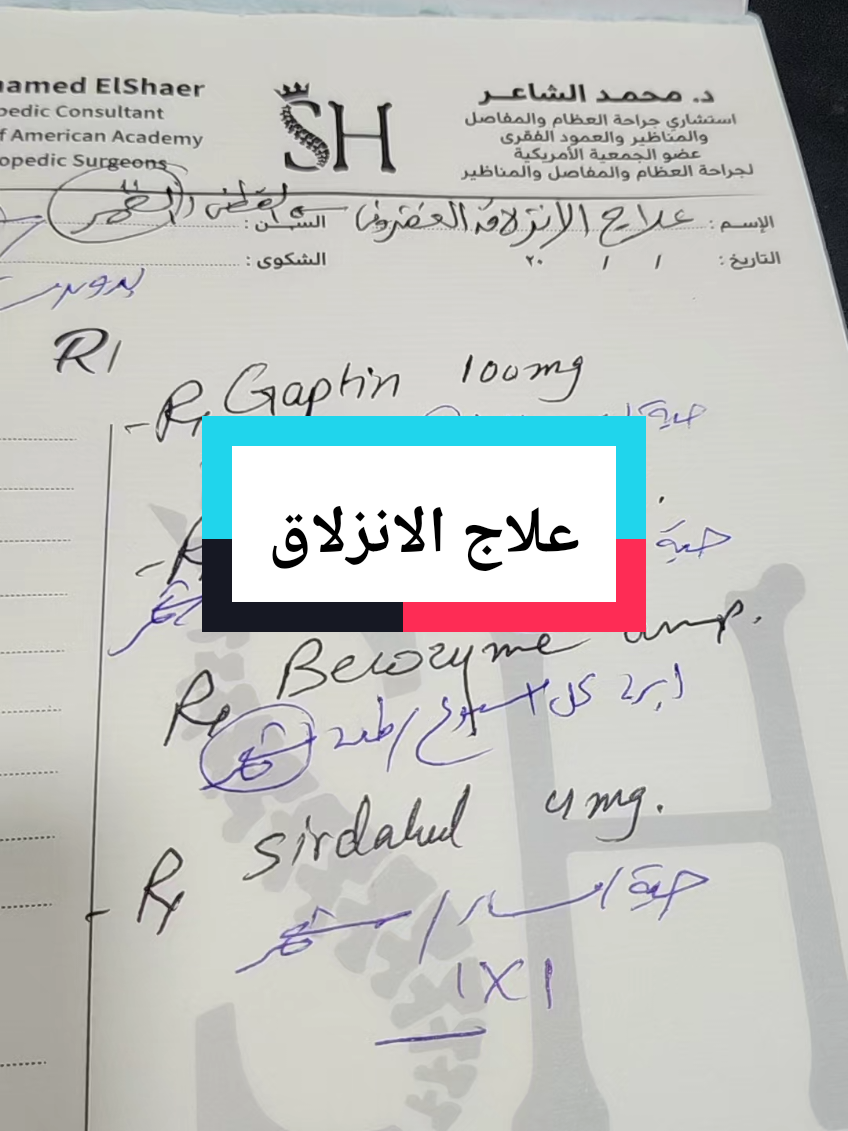 amed ElShaer
pedic Consultant
f American Academy
opedic Surgeons
SH
د. محمد الشاعر
استشاري جراحة العظام والمفاصل
والمناظير والعمود الفقرى
عضو الجمعية الأمريكية
لجراحة العظام والمفاصل والمناظير
الإسم : علاج الانزلاق الغضروفى
السن :
التاريخ : / / ٢٠
الشكوى :
بدون
R/
- Rx Gaptin 100mg
حبة
علاج الانزلاق
حبة
شهر
Rx Becozyme amp.
ابرة كل اسبوع / لمدة
شهر
- Rx Sirdalud 4mg.
حبة / مساء / شهر
1X1